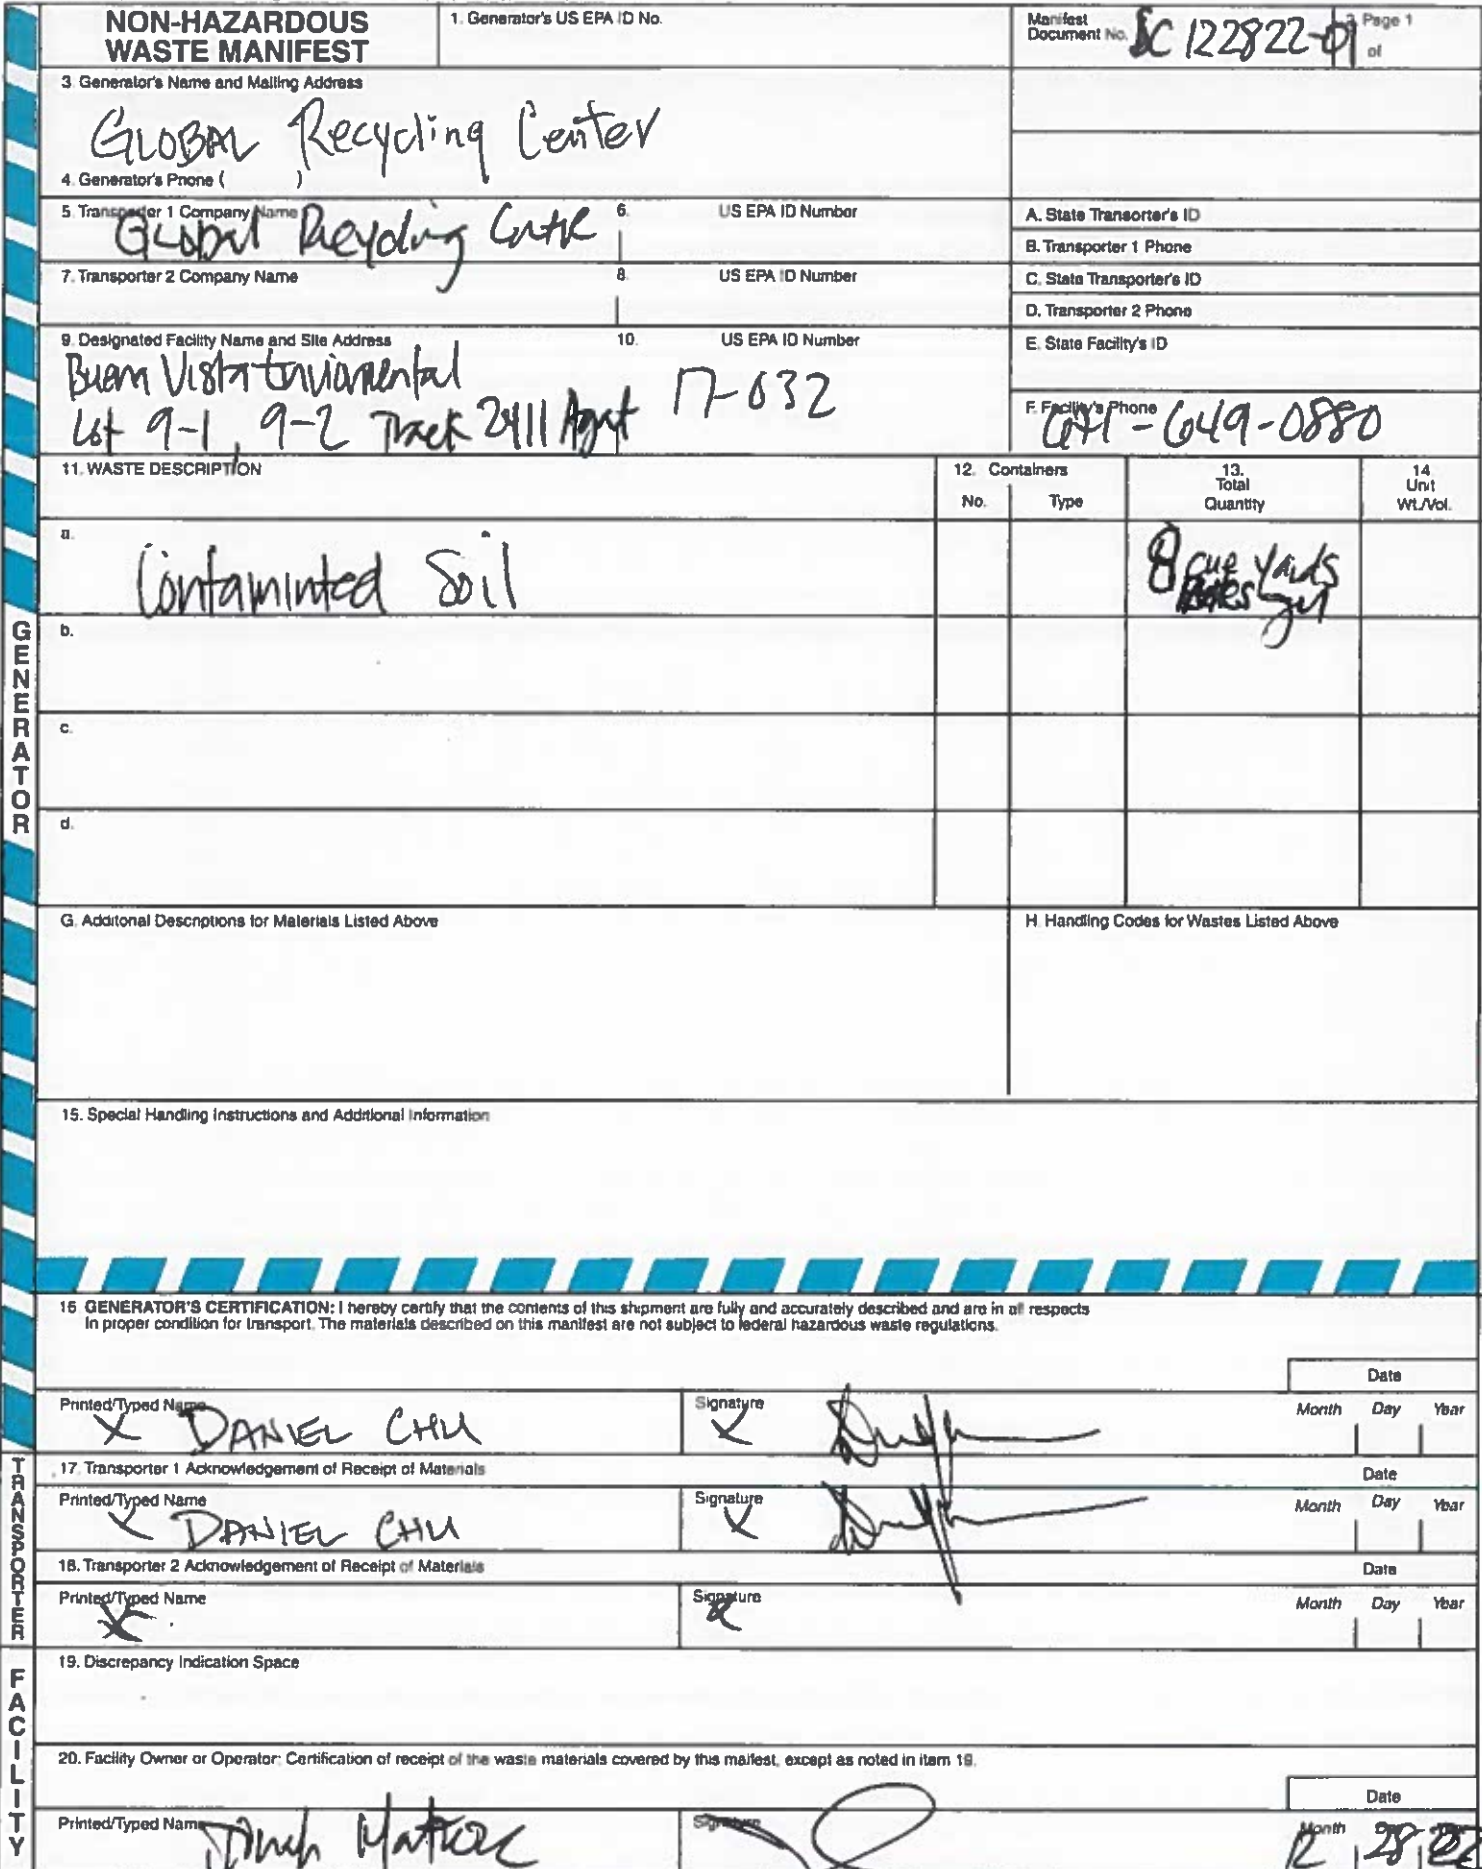 NON-HAZARDOUS
WASTE MANIFEST
1. Generator's US EPA ID No.
Manifest
Document No.
SC 122822-01
2. Page 1
of
3. Generator's Name and Mailing Address
GLOBAL Recycling Center
4. Generator's Phone ( )
5. Transporter 1 Company Name
Global Recycling
6.
US EPA ID Number
A. State Transorter's ID
B. Transporter 1 Phone
7. Transporter 2 Company Name
8.
US EPA ID Number
C. State Transporter's ID
D. Transporter 2 Phone
9. Designated Facility Name and Site Address
10.
US EPA ID Number
E. State Facility's ID
Buena Vista
Lot 9-1, 9-2 Track 2411 Agat
17-032
F. Facility's Phone
671-649-0880
11. WASTE DESCRIPTION
12. Containers
No.
Type
13.
Total
Quantity
14.
Unit
Wt./Vol.
a.
Contaminted Soil
8 yards
b.
c.
d.
G. Additonal Descriptions for Materials Listed Above
H. Handling Codes for Wastes Listed Above
15. Special Handling Instructions and Additional Information
GENERATOR
16. GENERATOR'S CERTIFICATION: I hereby certify that the contents of this shipment are fully and accurately described and are in all respects
in proper condition for transport. The materials described on this manifest are not subject to federal hazardous waste regulations.
Date
Printed/Typed Name
X DANIEL CHU
Signature
X
Month Day Year
TRANSPORTER
17. Transporter 1 Acknowledgement of Receipt of Materials
Date
Printed/Typed Name
X DANIEL CHU
Signature
X
Month Day Year
18. Transporter 2 Acknowledgement of Receipt of Materials
Date
Printed/Typed Name
X
Signature
X
Month Day Year
FACILITY
19. Discrepancy Indication Space
20. Facility Owner or Operator: Certification of receipt of the waste materials covered by this maifest, except as noted in item 19.
Date
Printed/Typed Name
Signature
Month
12 28 22